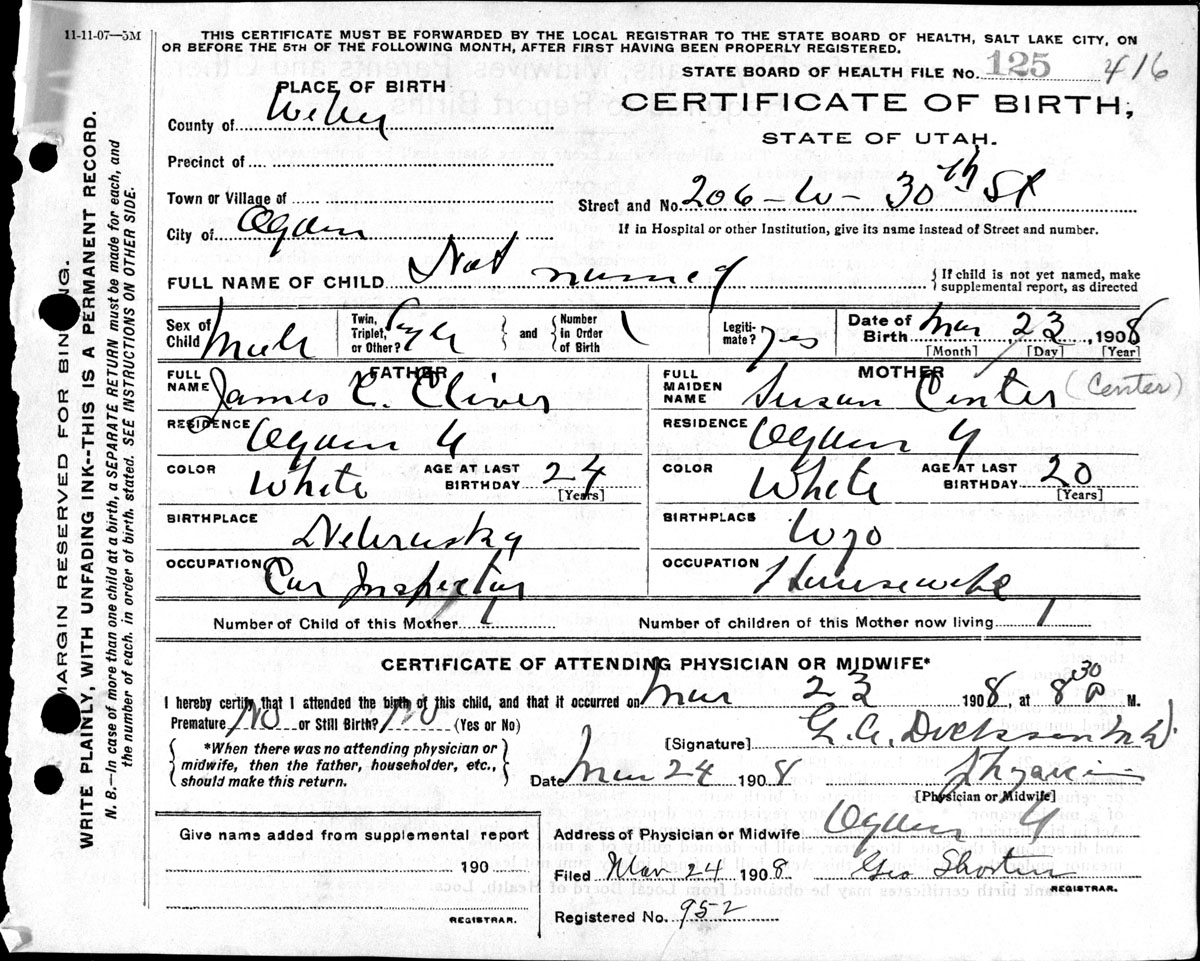 11-11-07—5M
THIS CERTIFICATE MUST BE FORWARDED BY THE LOCAL REGISTRAR TO THE STATE BOARD OF HEALTH, SALT LAKE CITY, ON
OR BEFORE THE 5TH OF THE FOLLOWING MONTH, AFTER FIRST HAVING BEEN PROPERLY REGISTERED.
STATE BOARD OF HEALTH FILE No. 125 416
PLACE OF BIRTH
CERTIFICATE OF BIRTH,
County of Weber
STATE OF UTAH.
Precinct of
Town or Village of
Street and No. 206 - W - 30th St
City of Ogden
If in Hospital or other Institution, give its name instead of Street and number.
FULL NAME OF CHILD Not named
{ If child is not yet named, make
supplemental report, as directed
Sex of Child Male
Twin, Triplet, or Other?
and
Number in Order of Birth 1
Legiti-mate? yes
Date of Birth Mar 23, 1908
[Month] [Day] [Year]
FATHER
FULL NAME James E. Cliver
RESIDENCE Ogden U
COLOR White
AGE AT LAST BIRTHDAY 24
[Years]
BIRTHPLACE Nebraska
OCCUPATION Car Inspector
MOTHER
FULL MAIDEN NAME Susan Center (Center)
RESIDENCE Ogden U
COLOR White
AGE AT LAST BIRTHDAY 20
[Years]
BIRTHPLACE Wyo
OCCUPATION Housewife
Number of Child of this Mother 1
Number of children of this Mother now living 1
CERTIFICATE OF ATTENDING PHYSICIAN OR MIDWIFE*
I hereby certify that I attended the birth of this child, and that it occurred on Mar 23 1908, at 8 30 P M.
Premature? No or Still Birth? No (Yes or No)
{ *When there was no attending physician or
midwife, then the father, householder, etc.,
should make this return. }
[Signature] G. A. Dickson M.D.
Date Mar 24 1908
[Physician or Midwife]
Give name added from supplemental report
190
REGISTRAR.
Address of Physician or Midwife Ogden U
Filed Mar 24 1908 Geo Shorten
REGISTRAR.
Registered No. 952
MARGIN RESERVED FOR BINDING.
WRITE PLAINLY, WITH UNFADING INK--THIS IS A PERMANENT RECORD.
N. B.—In case of more than one child at a birth, a SEPARATE RETURN must be made for each, and
the number of each, in order of birth, stated. SEE INSTRUCTIONS ON OTHER SIDE.